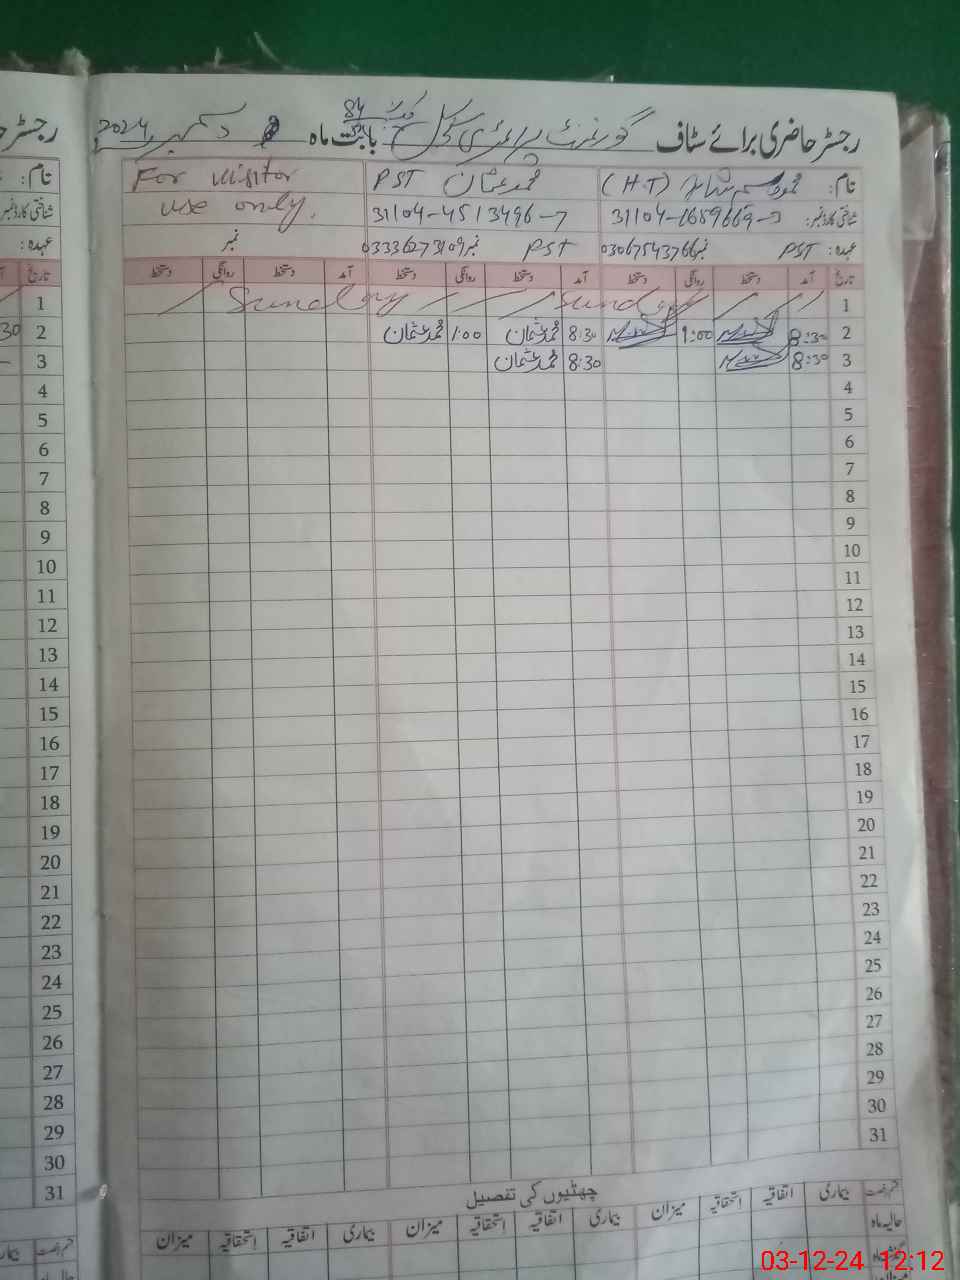 رجسٹر حاضری برائے سٹاف گورنمنٹ پرائمری سکول بابت ماہ دسمبر 2024
نام: (H.T) محمد عثمان PST For visitor
شناختی کارڈ نمبر: 31104-1659669-3 31104-4513496-7 use only.
عہدہ: PST نمبر 03067543766 PST نمبر 03336273109 نمبر
تاریخ آمد دستخط روانگی دستخط آمد دستخط روانگی دستخط آمد دستخط روانگی دستخط
1 Sunday Sunday
2 8:30 1:00 8:30 محمد عثمان 1:00 محمد عثمان
3 8:30 8:30 محمد عثمان
4
5
6
7
8
9
10
11
12
13
14
15
16
17
18
19
20
21
22
23
24
25
26
27
28
29
30
31
چھٹیوں کی تفصیل
قسم رخصت بیماری اتفاقیہ استحقاقیہ میزان بیماری اتفاقیہ استحقاقیہ میزان بیماری اتفاقیہ استحقاقیہ میزان
حالیہ ماہ
رجسٹر
نام:
شناختی کارڈ نمبر
عہدہ:
تاریخ
1
2 30
3
4
5
6
7
8
9
10
11
12
13
14
15
16
17
18
19
20
21
22
23
24
25
26
27
28
29
30
31
قسم رخصت
حالیہ ماہ
03-12-24 12:12